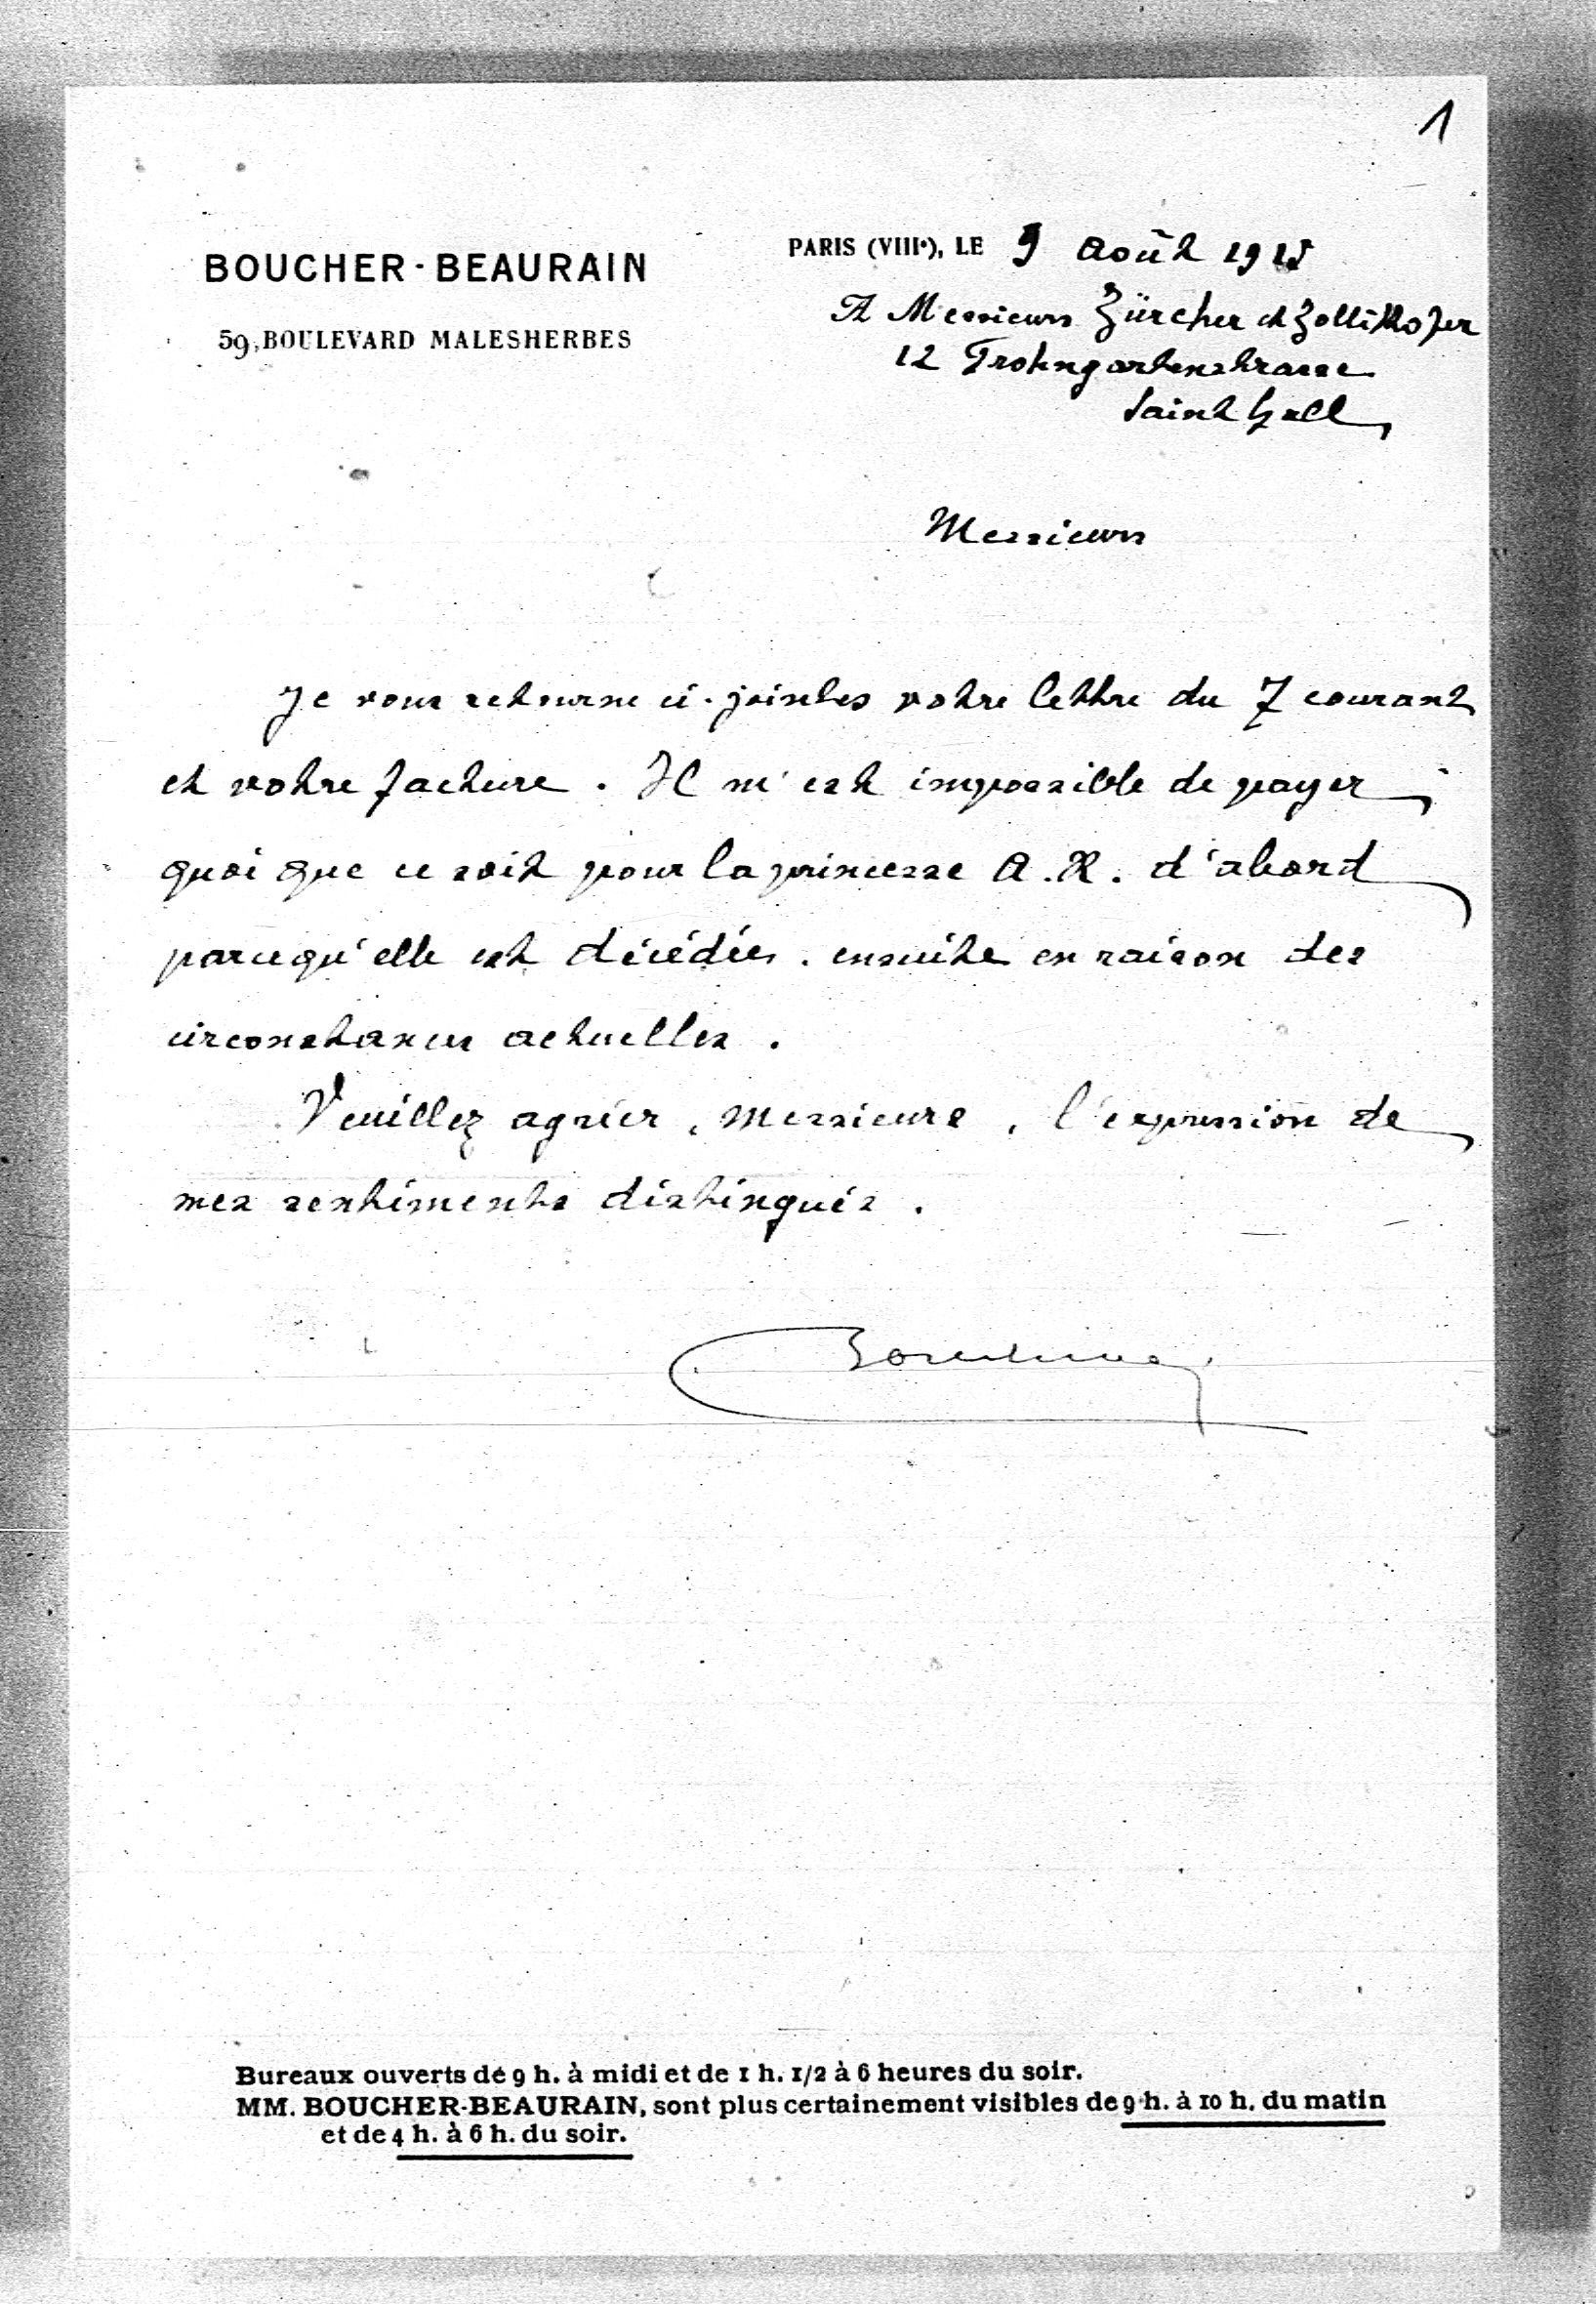 1
BOUCHER-BEAURAIN
59, BOULEVARD MALESHERBES
PARIS (VIIIe), LE 9 août 1915
A Messieurs Zürcher et Zollikofer
12 Frohngartenstrasse
Saint Gall
Messieurs
Je vous retourne ci-jointes votre lettre du 7 courant
et votre facture. Il m'est impossible de payer
quoi que ce soit pour la princesse A. R. d'abord
parcequ'elle est décédée. ensuite en raison des
circonstances actuelles.
Veuillez agréer, Messieurs, l'expression de
mes sentiments distingués.
Bureaux ouverts de 9 h. à midi et de 1 h. 1/2 à 6 heures du soir.
MM. BOUCHER-BEAURAIN, sont plus certainement visibles de 9 h. à 10 h. du matin
et de 4 h. à 6 h. du soir.